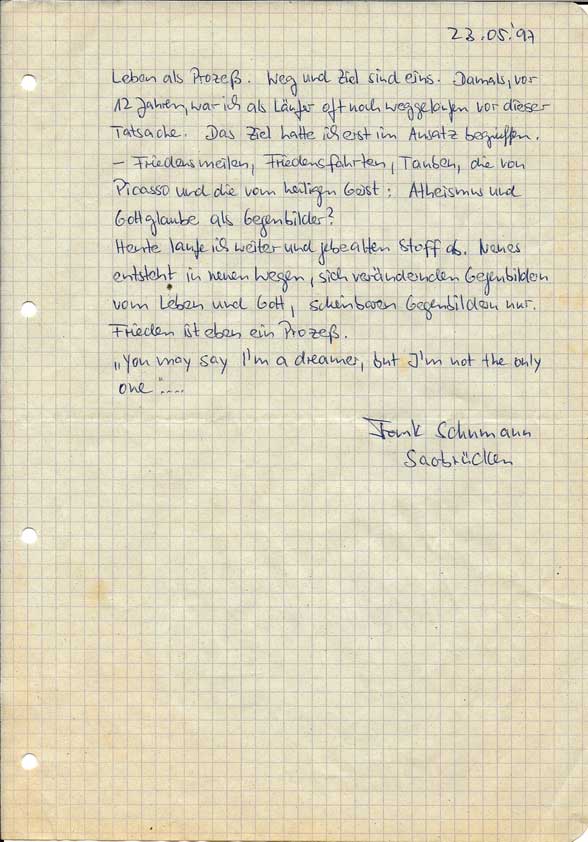 23.05.'97
Leben als Prozeß. Weg und Ziel sind eins. Damals, vor
12 Jahren, war ich als Läufer oft noch weggelaufen vor dieser
Tatsache. Das Ziel hatte ich erst im Ansatz begriffen.
– Friedensmeilen, Friedensfahrten, Tauben, die von
Picasso und die vom heiligen Geist: Atheismus und
Gottglaube als Gegenbilder?
Heute laufe ich weiter und gebe alten Stoff ab. Neues
entsteht in neuen Wegen, sich verändernden Gegenbildern
vom Leben und Gott, scheinbaren Gegenbildern nur.
Frieden ist eben ein Prozeß.
„You may say I'm a dreamer, but I'm not the only
one"....
Frank Schumann
Saarbrücken